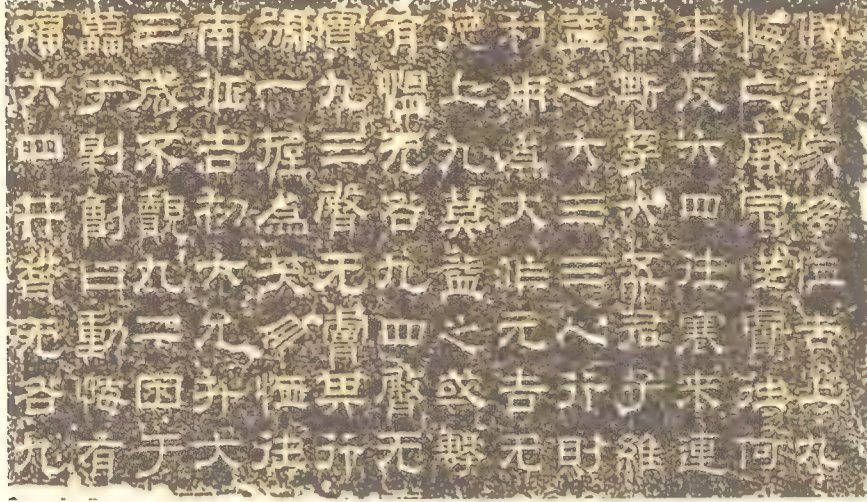 假有家勿恤吉上九
悔亡厥宗噬膚往何
來反六四往蹇來連
至斯孚六五君子維
益之六三三人行則
利用為大作元吉无
上九莫益之或擊
有慍无咎九四臀无
賓九三臀无膚其行
號一握為笑勿恤往
南征吉初六允升大
三歲不覿九二困于
藟于劓劊曰動悔有
福六四井甃无咎九